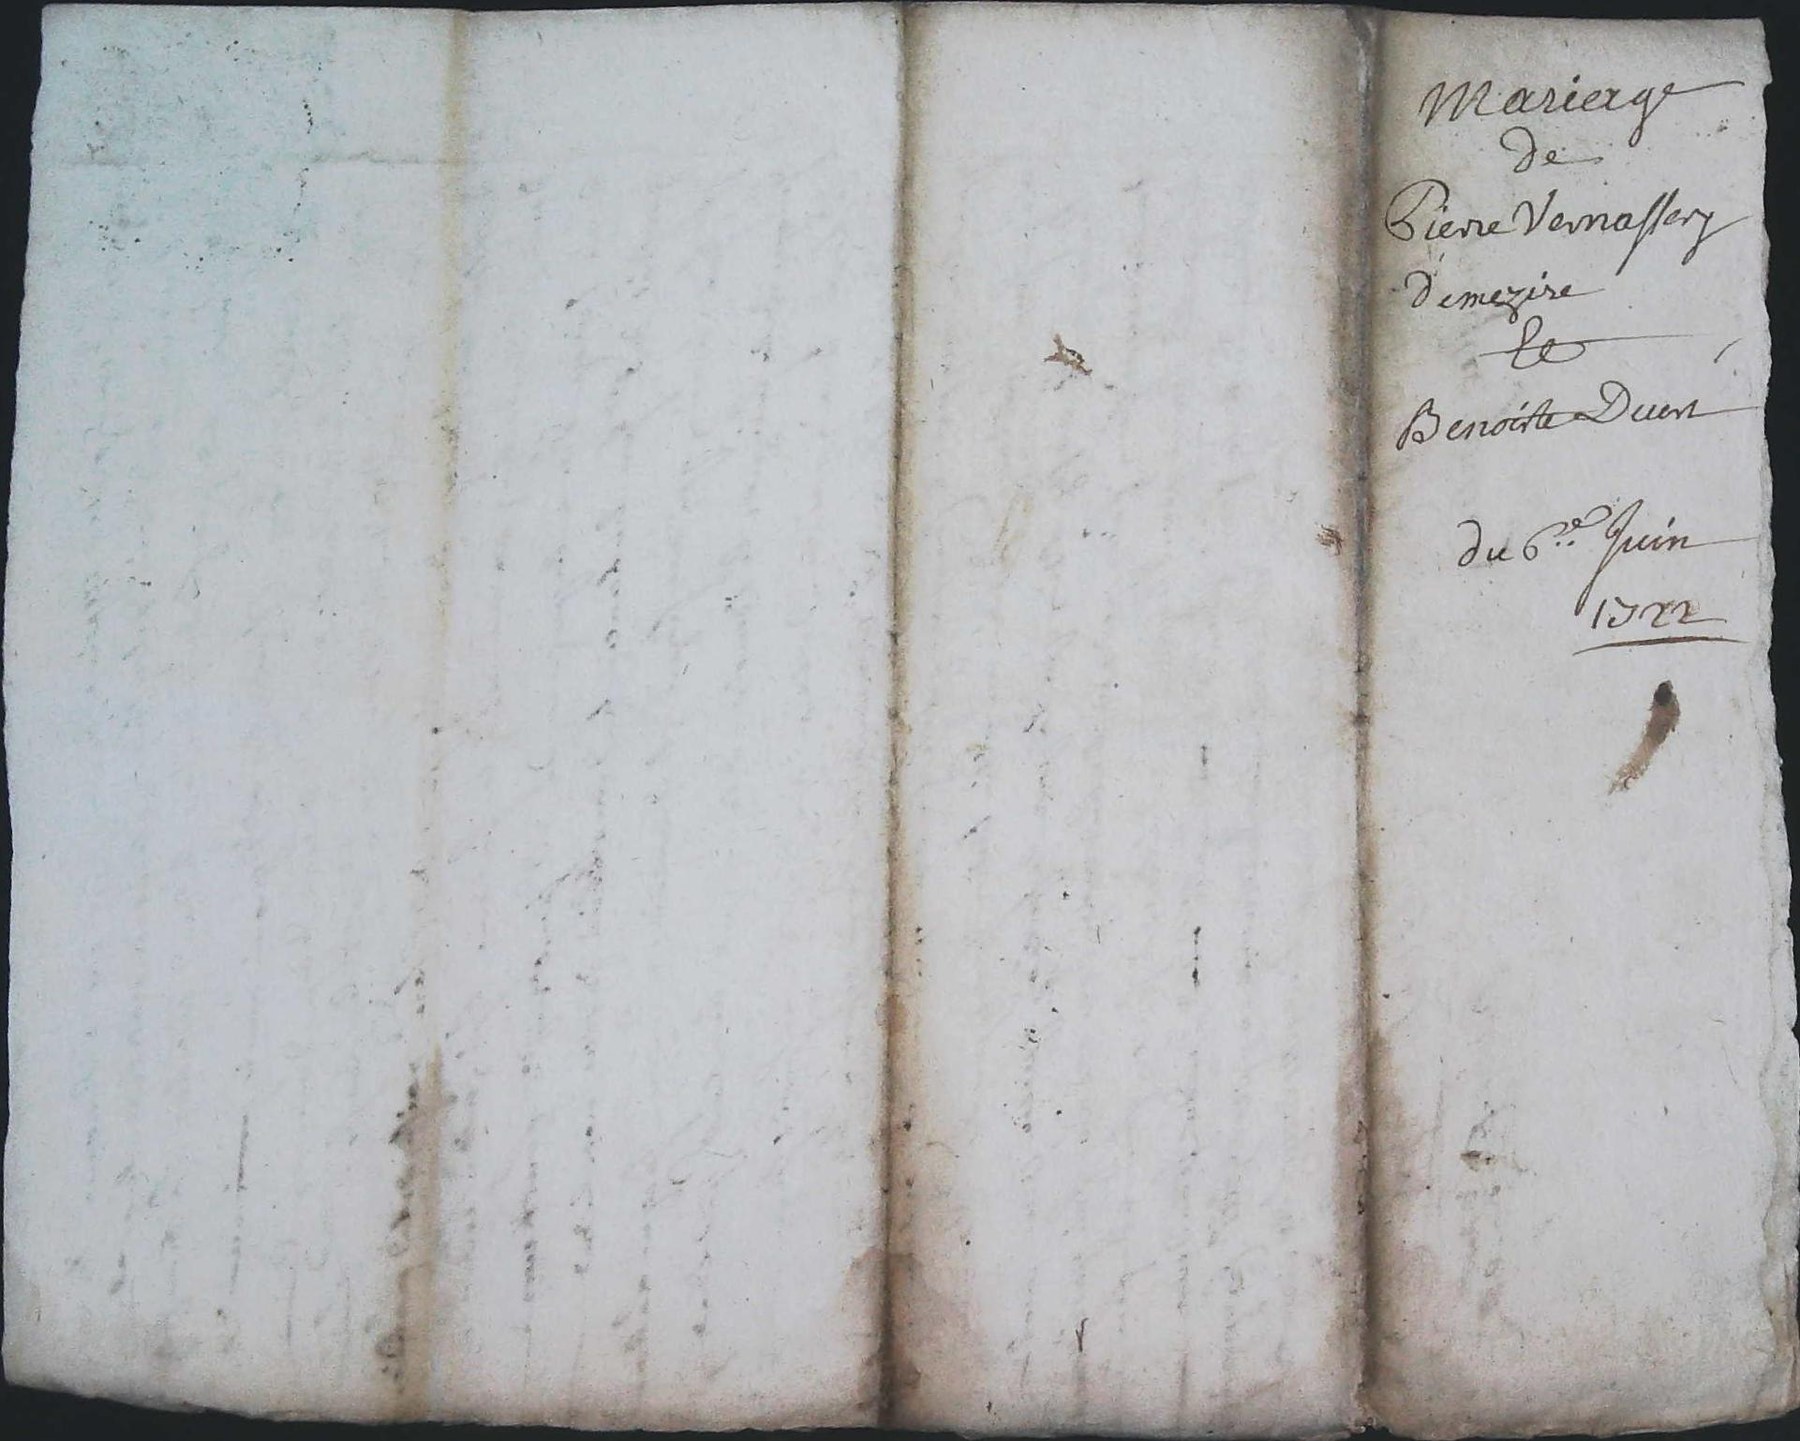 Mariage
de
Pierre Vernassery
demezire
Et
Benoiste Duert
du 6.e Juin
1722